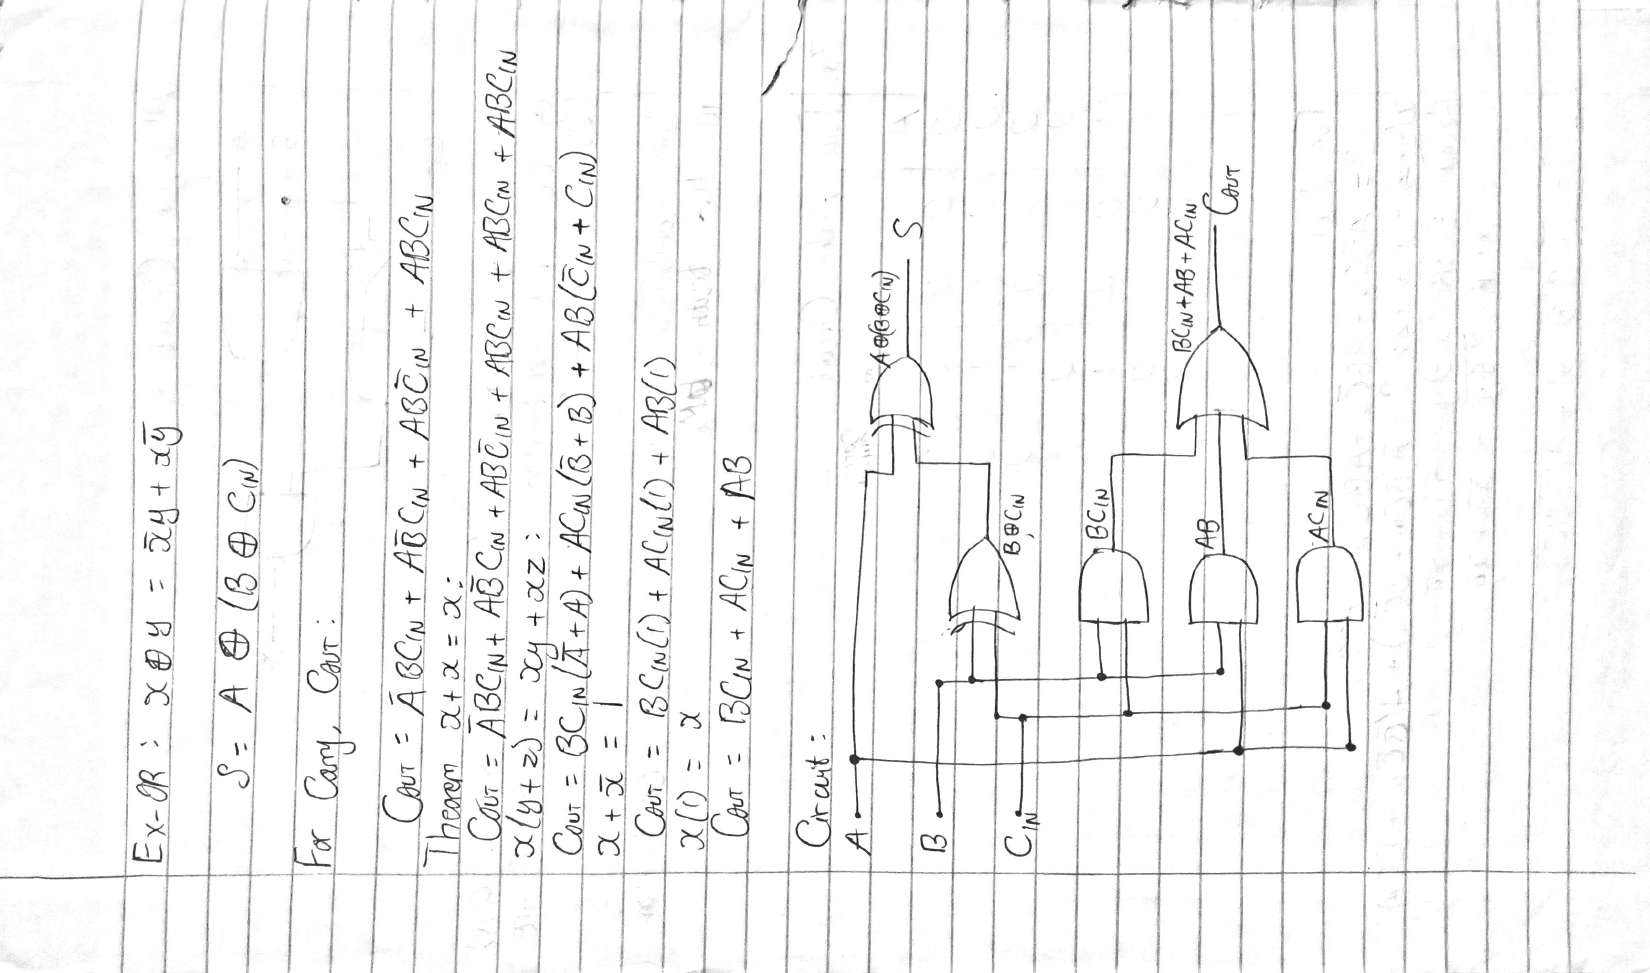 Ex-OR : x ⊕ y = x̄y + xȳ
S = A ⊕ (B ⊕ CIN)
For Carry, COUT :
COUT = ĀBCIN + AB̄CIN + ABC̄IN + ABCIN
Theorem x + x = x :
COUT = ĀBCIN + AB̄CIN + ABC̄IN + ABCIN + ABCIN + ABCIN
x(y + z) = xy + xz :
COUT = BCIN(Ā + A) + ACIN(B̄ + B) + AB(C̄IN + CIN)
x + x̄ = 1
COUT = BCIN(1) + ACIN(1) + AB(1)
x(1) = x
COUT = BCIN + ACIN + AB
Circuit :
A
A⊕(B⊕CIN)
S
B
CIN
B⊕CIN
BCIN
AB
ACIN
BCIN + AB + ACIN
COUT